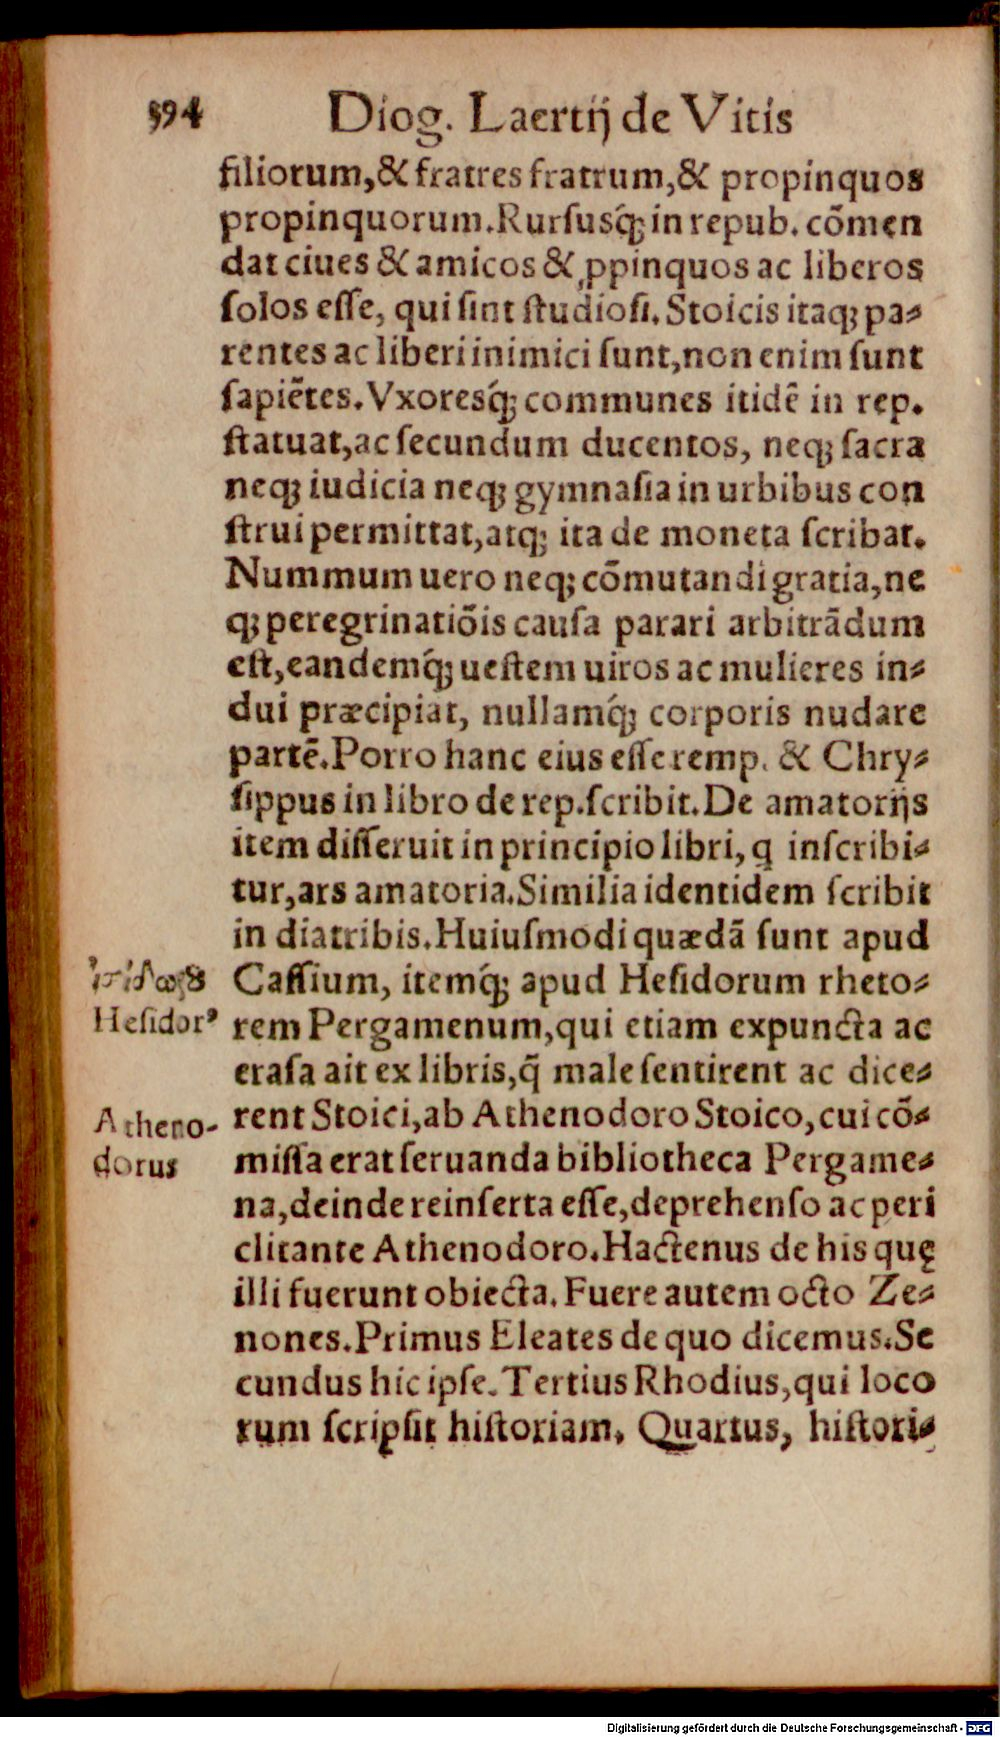 394 Diog. Laertij de Vitis
filiorum,& fratres fratrum,& propinquos
propinquorum.Rurſusq́; in repub. cōmen
dat ciues & amicos & ꝓpinquos ac liberos
ſolos eſſe, qui ſint ſtudioſi. Stoicis itaq; pa⸗
rentes ac liberi inimici ſunt,non enim ſunt
ſapiētes.Vxoresq́; communes itidē in rep.
ſtatuat,ac ſecundum ducentos, neq; ſacra
neq; iudicia neq; gymnaſia in urbibus con
ſtrui permittat,atq; ita de moneta ſcribat.
Nummum uero neq; cōmutandi gratia,ne
q; peregrinatiōis cauſa parari arbitrādum
eſt,eandemq́; ueſtem uiros ac mulieres in⸗
dui præcipiat, nullamq́; corporis nudare
partē.Porro hanc eius eſſe remp. & Chry⸗
ſippus in libro de rep.ſcribit.De amatorijs
item diſſeruit in principio libri, q inſcribi⸗
tur,ars amatoria.Similia identidem ſcribit
in diatribis.Huiuſmodi quædā ſunt apud
Caſſium, itemq́; apud Heſidorum rheto⸗
Heſidorꝰ
rem Pergamenum,qui etiam expuncta ac
eraſa ait ex libris,q̄ male ſentirent ac dice⸗
Atheno-
rent Stoici,ab Athenodoro Stoico,cui cō⸗
dorus
miſſa erat ſeruanda bibliotheca Pergame⸗
na,deinde reinſerta eſſe,deprehenſo ac peri
clitante Athenodoro.Hactenus de his quę
illi fuerunt obiecta. Fuere autem octo Ze⸗
nones.Primus Eleates de quo dicemus.Se
cundus hic ipſe.Tertius Rhodius,qui loco
rum ſcripſit hiſtoriam. Quartus, hiſtori⸗
Digitalisierung gefördert durch die Deutsche Forschungsgemeinschaft - DFG